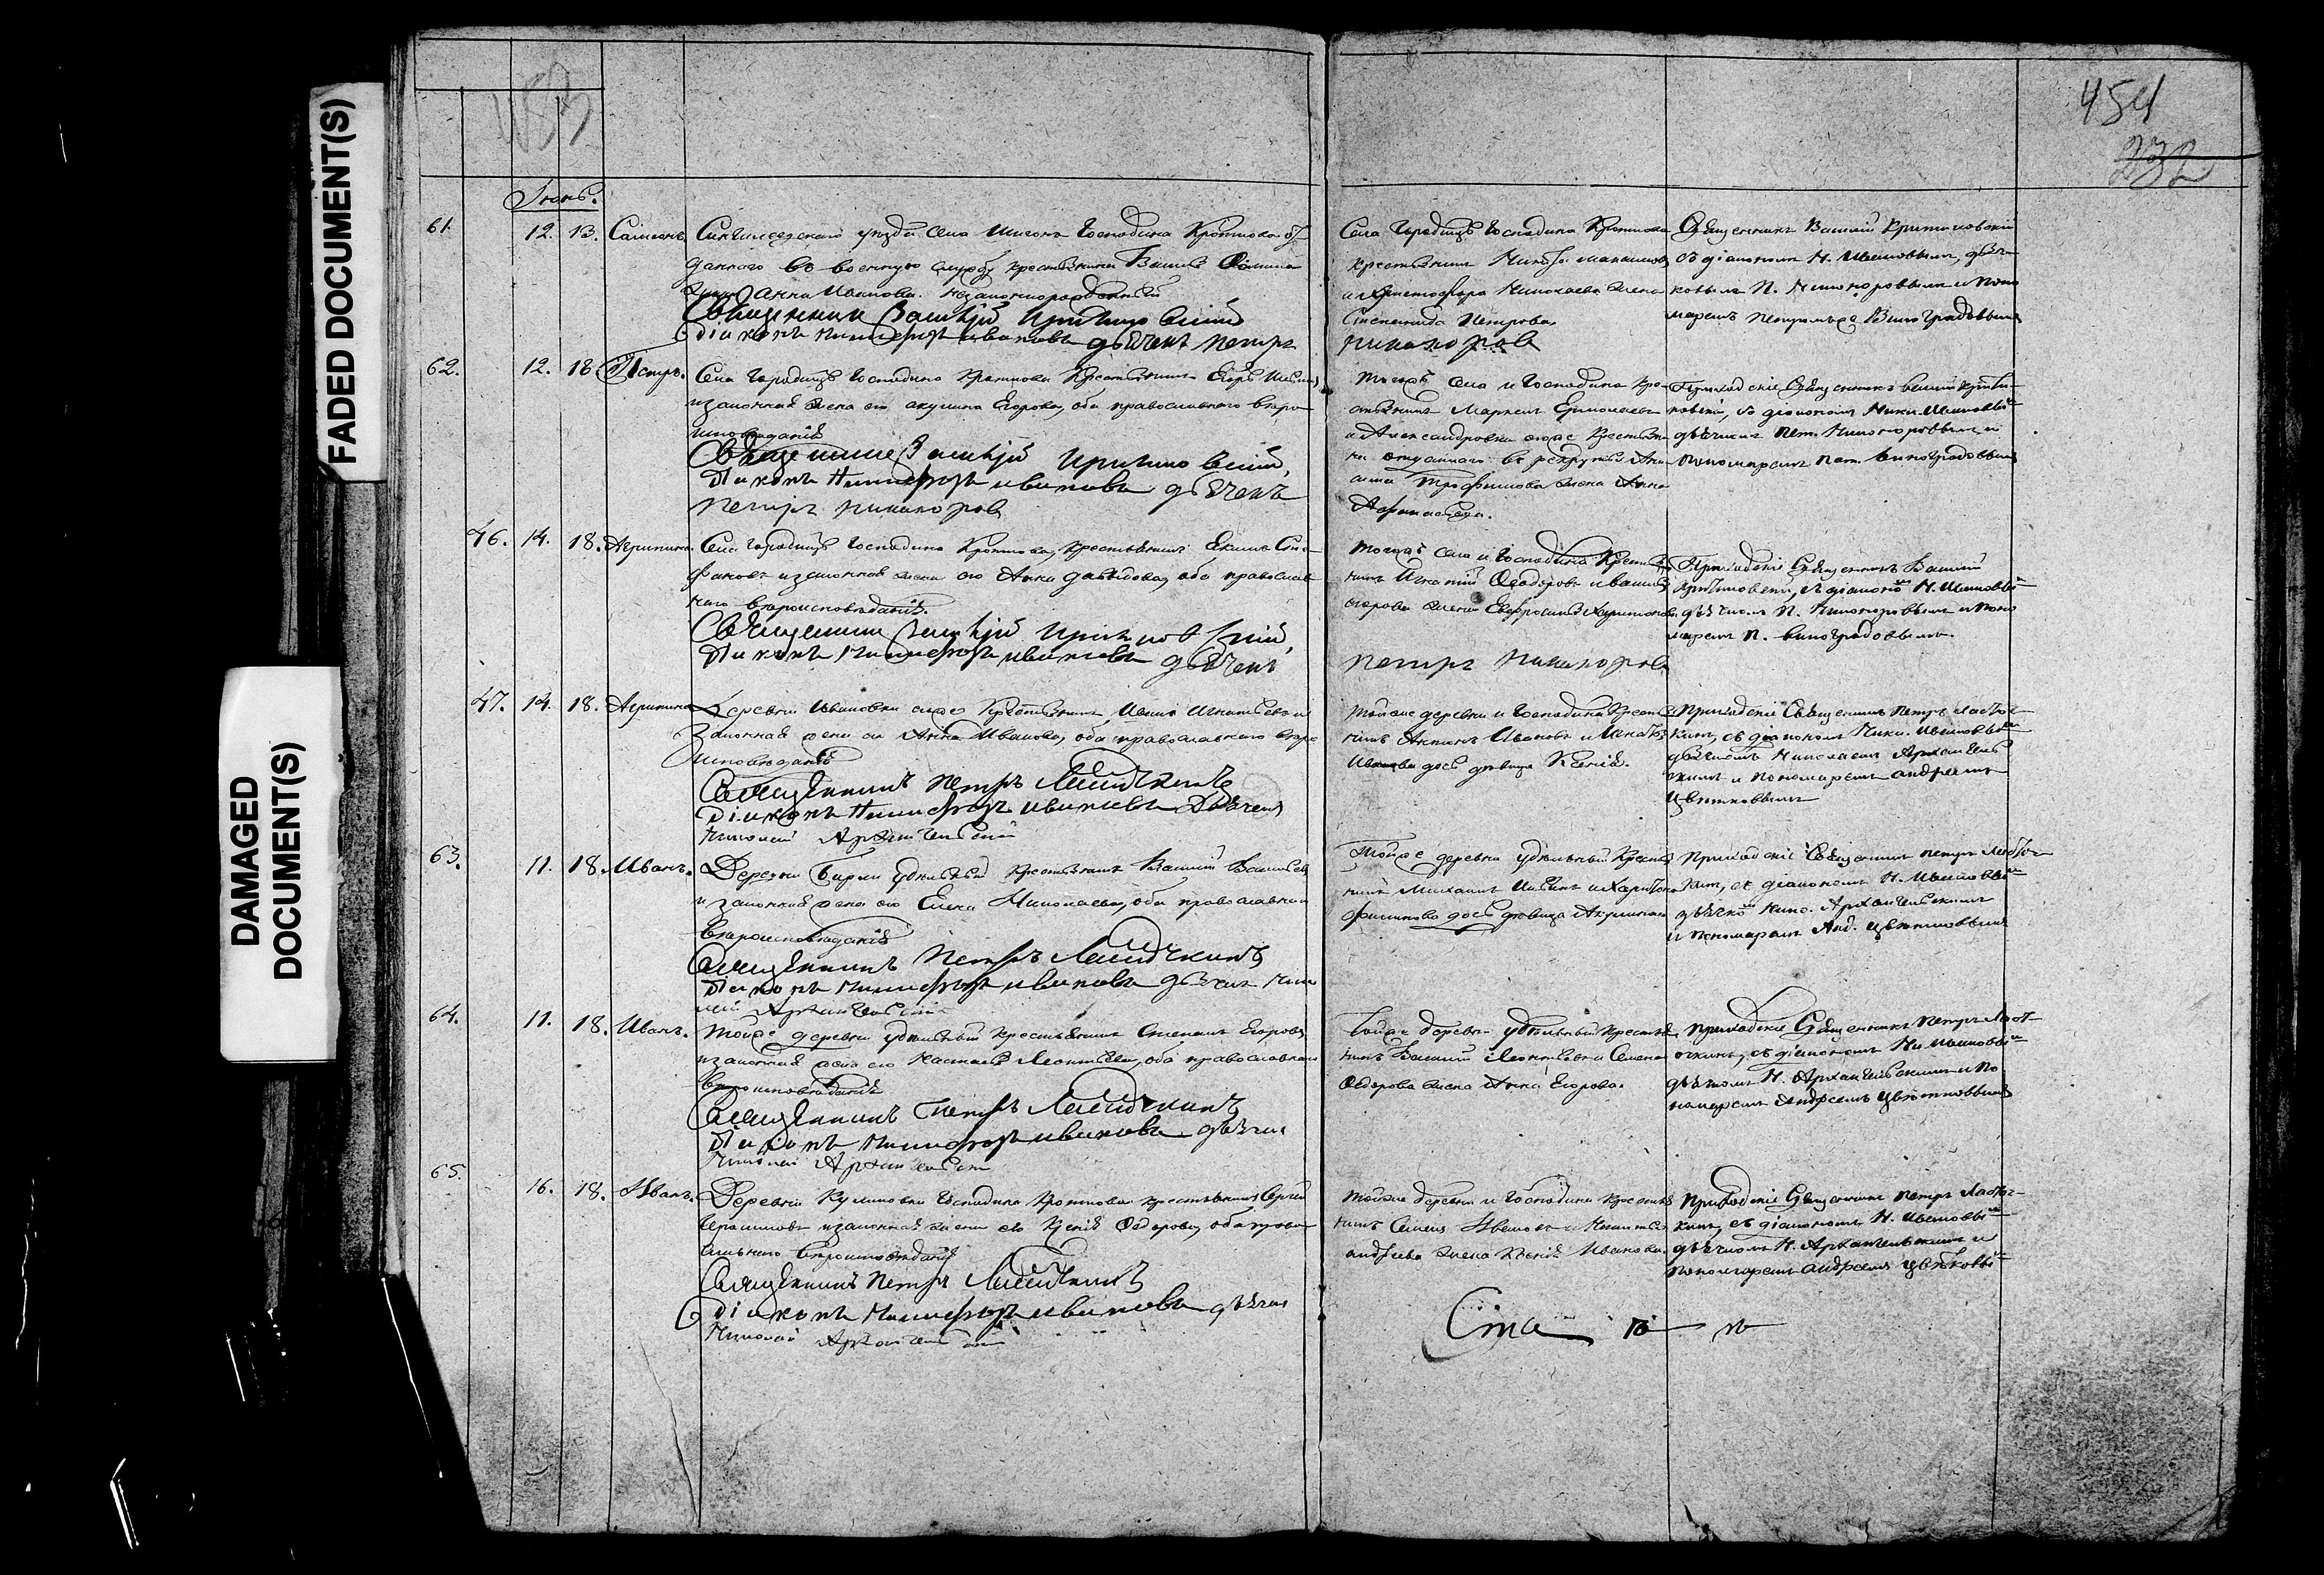 FADED DOCUMENT(S)
DAMAGED
DOCUMENT(S)
453
454
232
Іюнь.
61. 12. 13. Самсонъ. Сингилеевскаго уѣзда села Господина Кроткова от-
даннаго въ военную службу крестьянина
жена Анна Иванова. незаконнорожденный
Священникъ Василій
Діаконъ Никифоръ Ивановъ дьячекъ Петръ
Села Городищъ Господина Кроткова
крестьянинъ
и Христофора Николаева жена
Степанида Петрова.
Никаноровъ
Священникъ Василій
съ діакономъ Н. Ивановымъ, дьяч-
комъ П. Никаноровымъ и поно-
маремъ Петромъ Виноградовымъ
62. 12. 18. Петръ. Села Городищъ Господина Кроткова Крестьянинъ Егоръ
и законная жена его Акулина Егорова, оба православнаго вѣро-
исповѣданія
Священникъ Василій
Діаконъ Никифоръ Ивановъ дьячекъ
Петръ Никаноровъ
Тогожъ села и Господина Кре-
стьянинъ Маркелъ Ермолаевъ
и Александровки онаго Крестьяни-
на отданнаго въ рекруты
Трофимова жена Анна
Афанасьева.
Приходскіе Священникъ Василій
съ діакономъ Ники. Ивановымъ
дьячкомъ Пет. Никаноровымъ и
пономаремъ Пет. Виноградовымъ
46. 14. 18. Агрипина. Села Городищъ Господина Кроткова, Крестьянинъ Екимъ Сте-
фановъ и законная жена его Анна Давыдова, оба православ-
наго вѣроисповѣданія.
Священникъ Василій
Діаконъ Никифоръ Ивановъ дьячекъ
Тогожъ села и Господина Крестья-
нинъ Игнатій Ѳеодоровъ и
Егорова жена Евфросинья Харитонова.
Петръ Никаноровъ
Приходскіе Священникъ Василій
съ діакономъ Н. Ивановымъ
дьячкомъ П. Никаноровымъ и поно-
маремъ П. Виноградовымъ.
47. 14. 18. Агрипина Деревни Ивановки онаго Крестьянинъ Иванъ Игнатьевъ и
законная жена его Анна Иванова, оба православнаго вѣро-
исповѣданія
Священникъ Петръ Ласточкинъ
Діаконъ Никифоръ Ивановъ Дьячекъ
Николай Архангельскій
Тойже деревни и Господина Крестья-
нинъ Антонъ Ивановъ и
Иванова дочь дѣвица Ксенія.
Приходскіе Священникъ Петръ Ласточ-
кинъ, съ діакономъ Ники. Ивановымъ
дьячкомъ Николаемъ Архангель-
скимъ и пономаремъ Андреемъ
Цвѣтковымъ
63. 11. 18. Иванъ. Деревни Бирли удѣльный крестьянинъ Василій Васильевъ
и законная жена его Елена Николаева, оба православнаго
вѣроисповѣданія
Священникъ Петръ Ласточкинъ
Діаконъ Никифоръ Ивановъ дьячекъ Нико-
лай Архангельскій
Тойже деревни удѣльный Крестья-
нинъ Михаилъ
дочь дѣвица Акулина
Приходскіе Священникъ Петръ Ласточ-
кинъ, съ діакономъ Н. Ивановымъ
дьячкомъ Нико. Архангельскимъ
и пономаремъ Анд. Цвѣтковымъ
64. 11. 18. Иванъ. Тойже деревни удѣльный крестьянинъ Степанъ Егоровъ
и законная жена его Настасья Леонтьева, оба православнаго
вѣроисповѣданія
Священникъ Петръ Ласточкинъ
Діаконъ Никифоръ Ивановъ дьячекъ
Николай Архангельскій
Тойже деревни удѣльный крестья-
нинъ Василій Леонтьевъ и Семена
Ѳедорова жена Анна Егорова.
Приходскіе Священникъ Петръ Ласт-
очкинъ, съ діакономъ Ни. Ивановымъ
дьячкомъ Н. Архангельскимъ и по-
номаремъ Андреемъ Цвѣтковымъ
65. 16. 18. Иванъ. Деревни Куликовки Господина Кроткова крестьянинъ Сергій
Герасимовъ и законная жена его Ксенія Ѳедорова, оба право-
славнаго вѣроисповѣданія
Священникъ Петръ Ласточкинъ
Діаконъ Никифоръ Ивановъ дьячекъ
Николай Архангельскій
Тойже деревни и Господина крестья-
нинъ Ивановъ и
Андреева жена Ксенія Иванова.
Приходскіе Священникъ Петръ Ласточ-
кинъ, съ діакономъ Н. Ивановымъ
дьячкомъ Н. Архангельскимъ и
пономаремъ Андреемъ Цвѣтковымъ